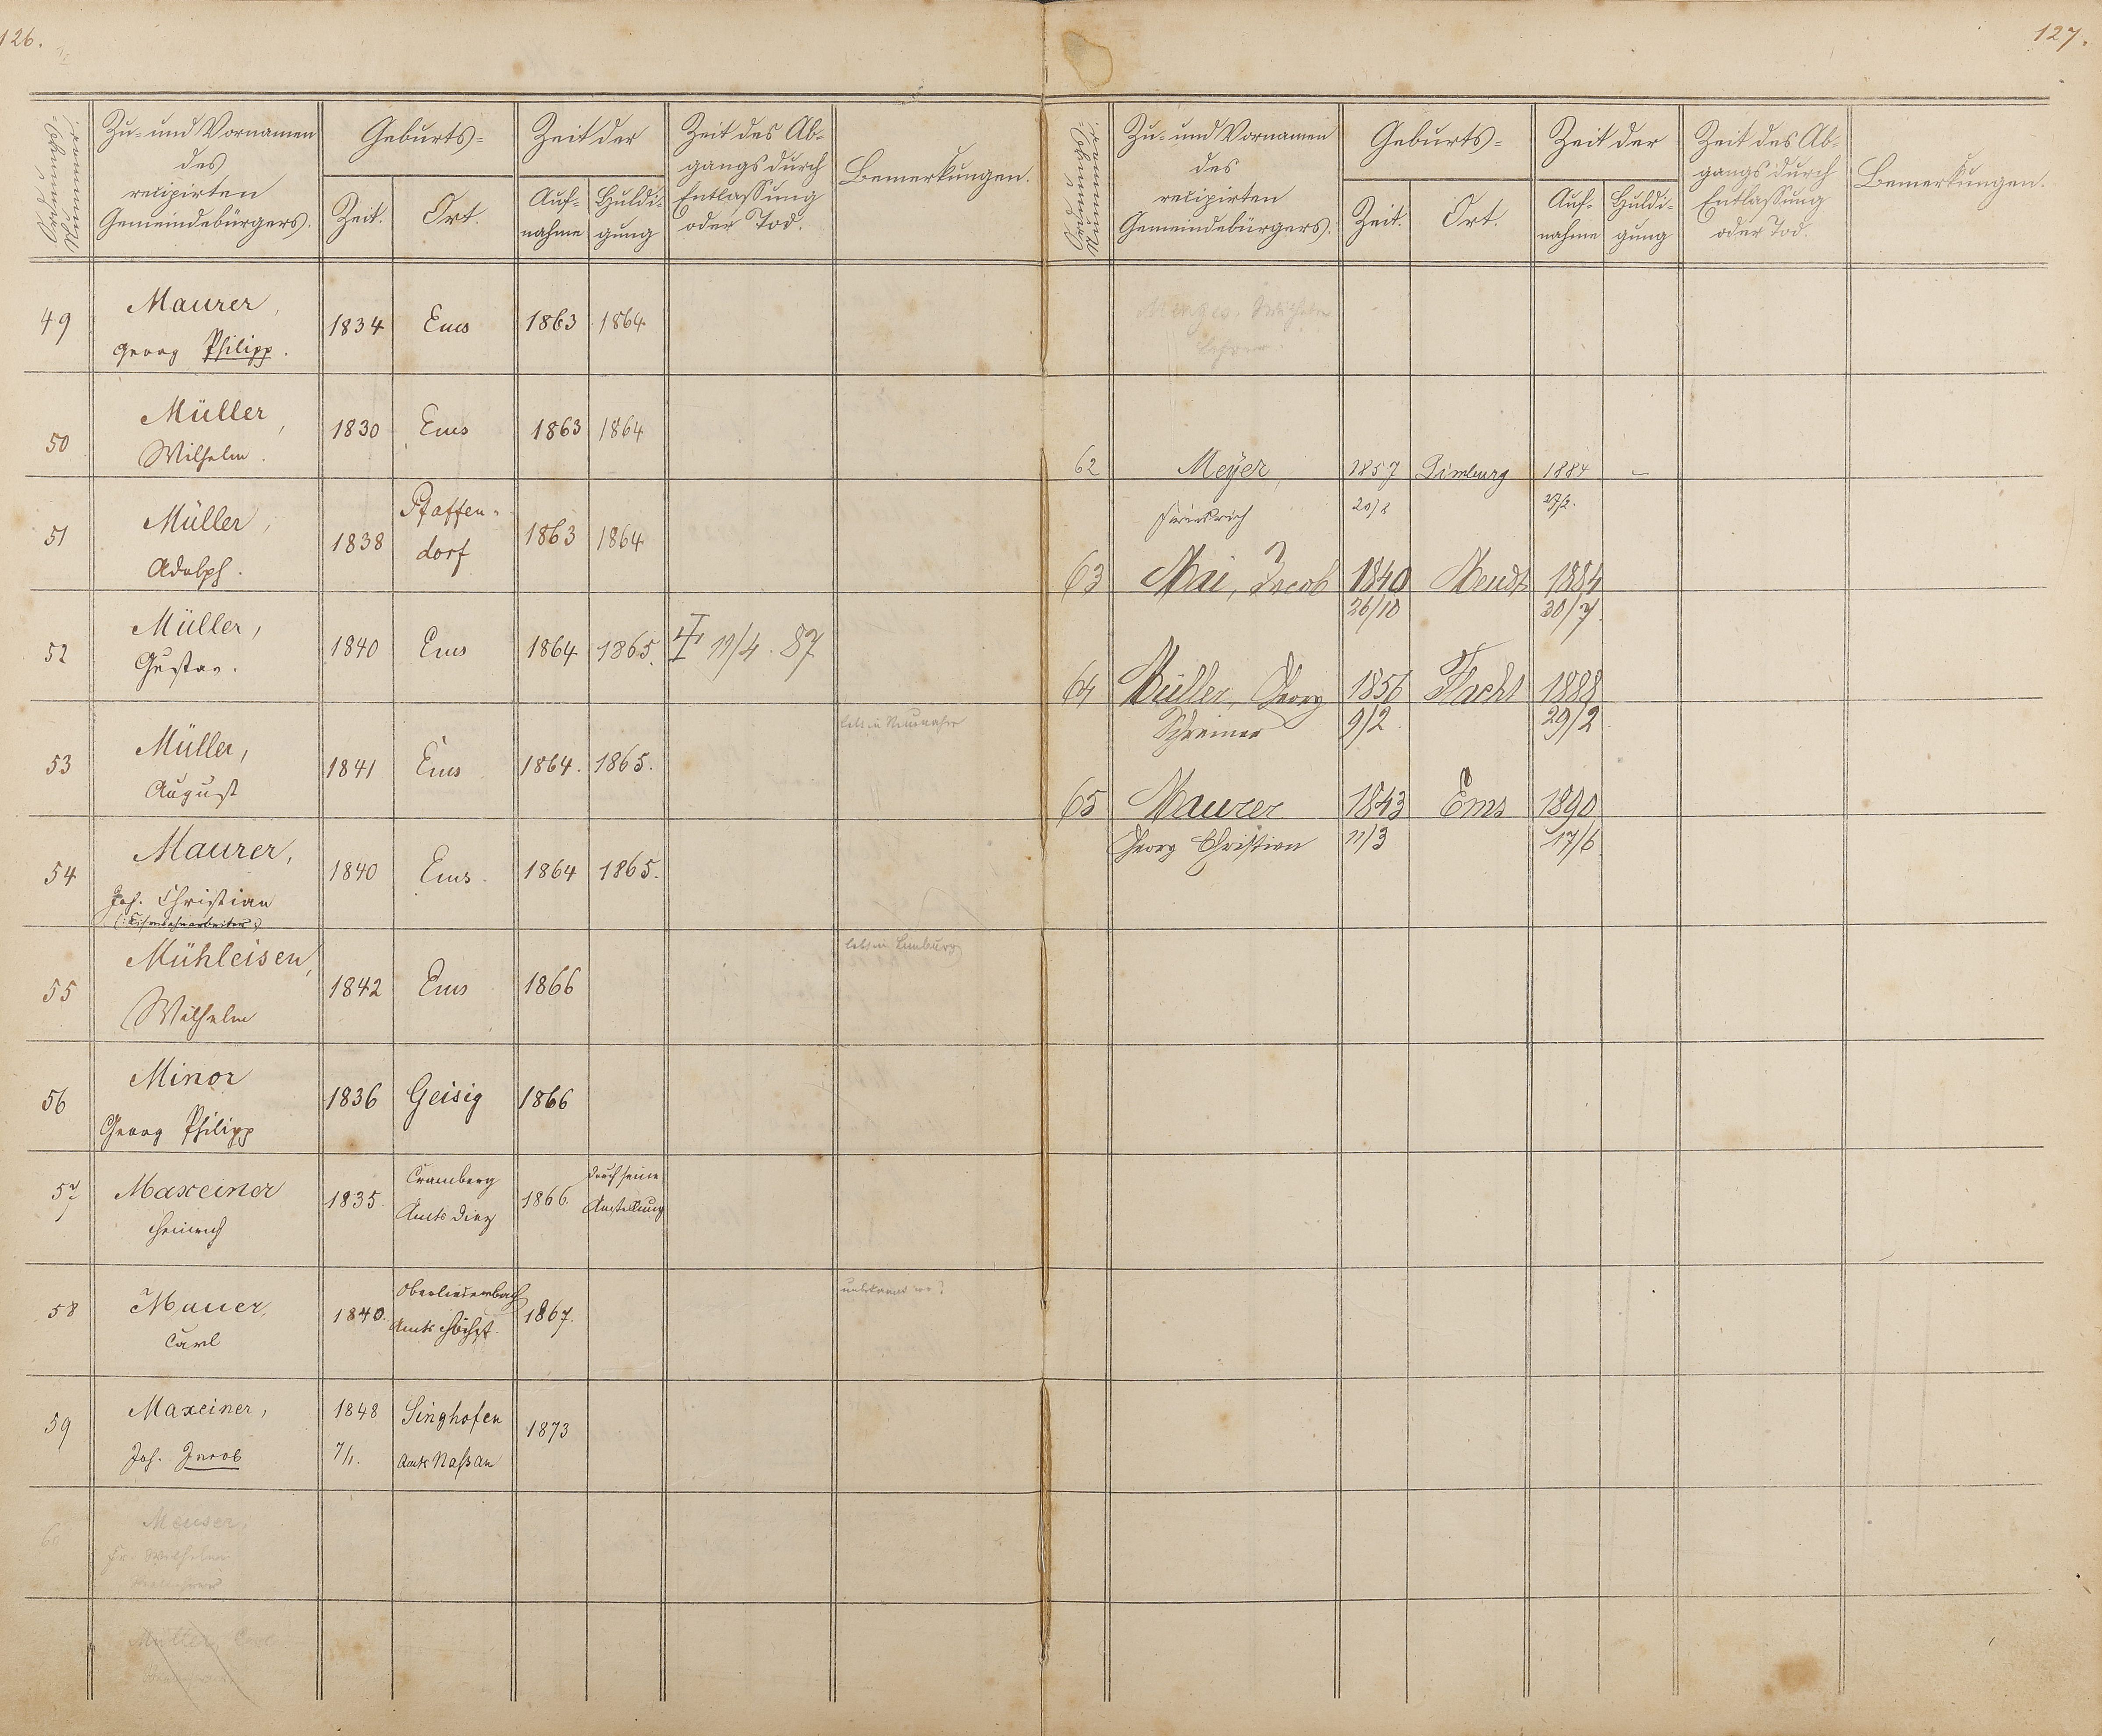 126.
Ordnungs-
Nummer.
Zu- und Vornamen
des
recipirten
Gemeindebürgers.
Geburts-
Zeit.
Ort.
Zeit der
Auf-
nahme
Huldi-
gung
Zeit des Ab-
gangs durch
Entlassung
oder Tod.
Bemerkungen.
49
Maurer,
Georg Philipp.
1834
Ems
1863
1864
50
Müller,
Wilhelm.
1830
Ems
1863
1864
51
Müller,
Adolph.
1838
Pfaffen-
dorf
1863
1864
52
Müller,
Gustav.
1840
Ems
1864
1865.
11/4. 87
53
Müller,
August
1841
Ems
1864.
1865.
lebt in
54
Maurer,
Joh. Christian
(: Eisenbahnarbeiter :)
1840
Ems.
1864
1865.
55
Mühleisen,
Wilhelm
1842
Ems
1866
lebt in Limburg
56
Minor
Georg Philipp
1836
Geisig
1866
57
Maxeiner
Heinrich
1835.
Cramberg
Amts Diez
1866.
durch seine
Anstellung
58
Mauer,
Carl
1840.
Oberliederbach
Amts Höchst.
1867.
unbekannt wo?
59
Maxeiner,
Joh. Jacob
1848
7/1.
Singhofen
Amts Nassau
1873
60
Meuser,
Fr. Wilhelm
Müller, Carl
127.
Ordnungs-
Nummer.
Zu- und Vornamen
des
recipirten
Gemeindebürgers.
Geburts-
Zeit.
Ort.
Zeit der
Auf-
nahme
Huldi-
gung
Zeit des Ab-
gangs durch
Entlassung
oder Tod.
Bemerkungen.
Menges, Wilhelm
Lehrer.
62
Meyer,
Friedrich
1857
20/8
Limburg
1884
27/2.
–
63
Mai, Jacob
1840
26/10
Meudt
1884
30/7.
64
Müller, Georg
Schreiner
1856
9/2.
Flacht
1888
29/2.
65
Maurer
Georg Christian
1843
11/3
Ems
1890
17/6.